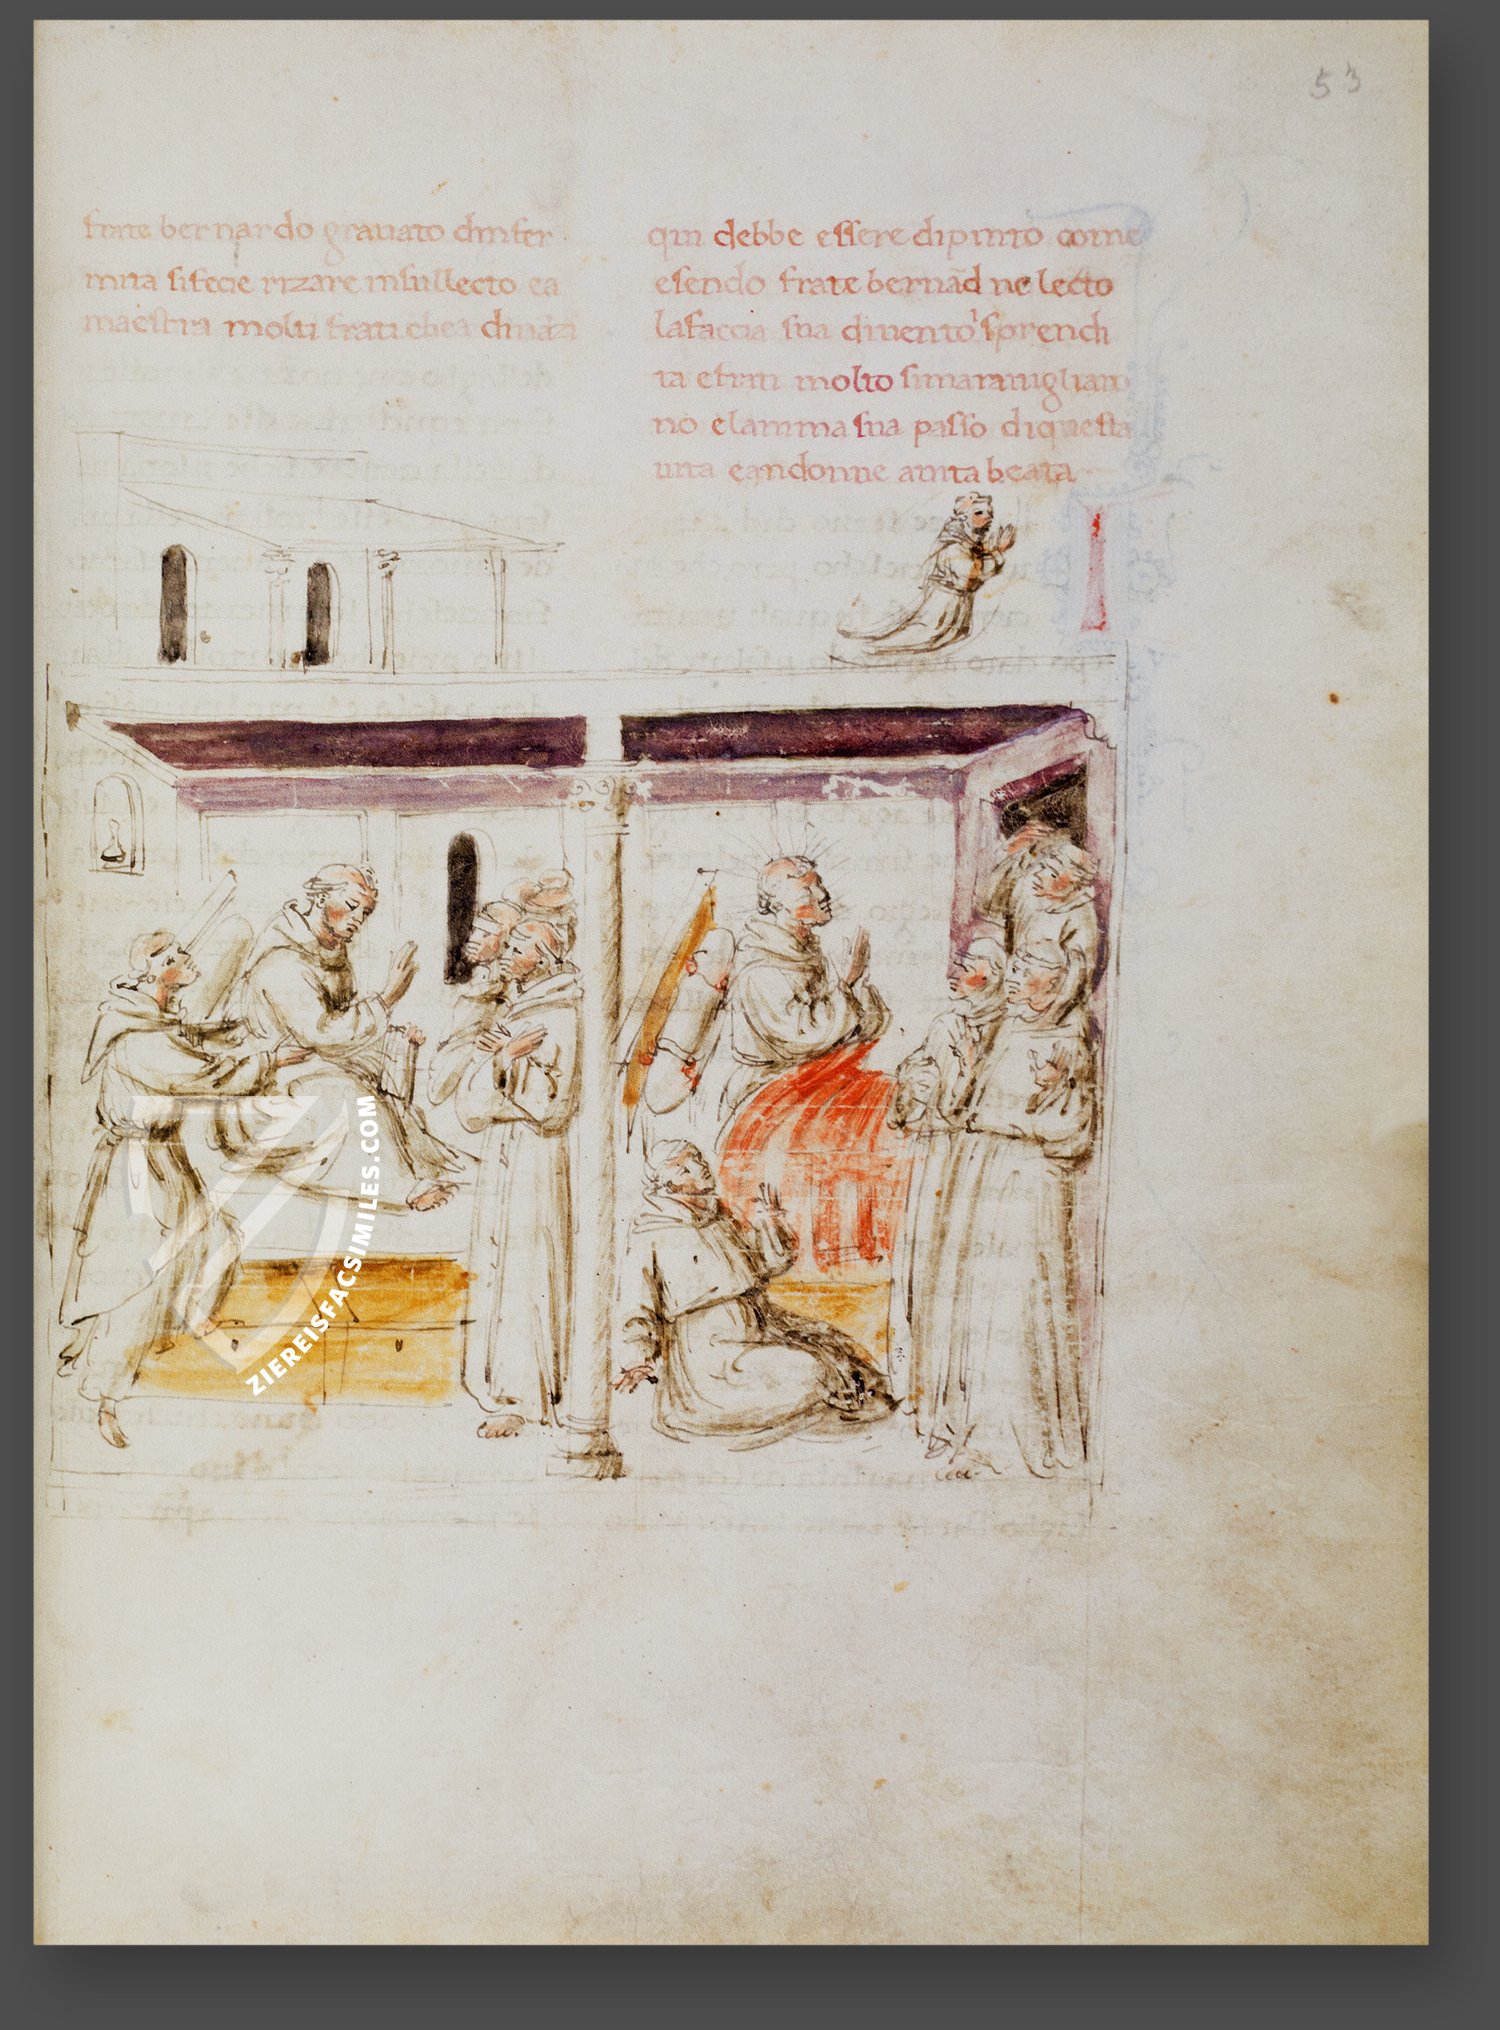 53
frate bernardo grauato dinfer
mita sifecie rizare insullecto ea
maestra molti frati chea
qui debbe essere dipinto come
esendo frate bernãd ne lecto
lafaccia sua diuento sprendi
ta efrati molto simarauigliaro
no elanima sua passo diquesta
uita eandonne auita beata
ZIEREISFACSIMILES.COM